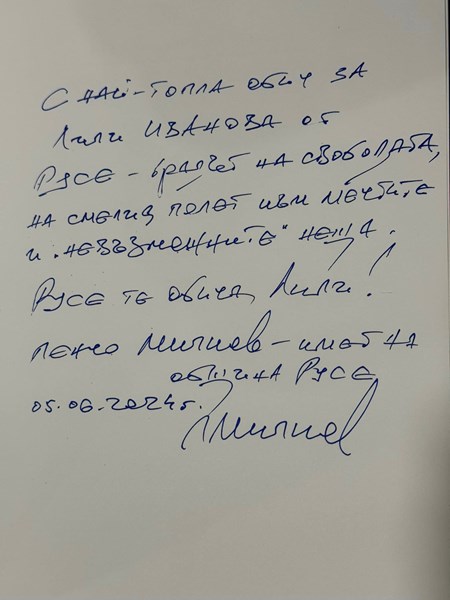 С най-топла обич за
Лили Иванова от
Русе - градът на свободата,
на смелия полет към мечтите
и „невъзможните" неща.
Русе те обича, Лили!
Пенчо Милков - кмет на
община Русе
05.06.2024г.